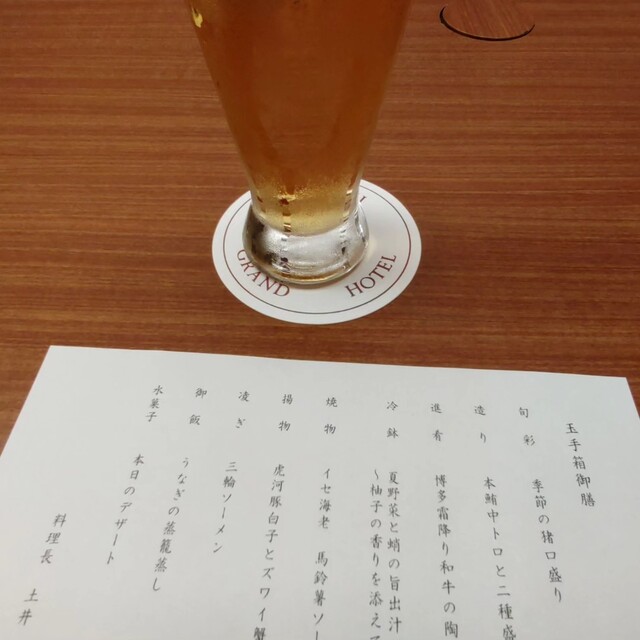 GRAND HOTEL
玉手箱御膳
旬彩 季節の猪口盛り
造り 本鮪中トロと二種盛
進肴 博多霜降り和牛の陶
冷鉢 夏野菜と蛸の旨出汁
～柚子の香りを添えて
焼物 イセ海老 馬鈴薯ソー
揚物 虎河豚白子とズワイ蟹
凌ぎ 三輪ソーメン
御飯 うなぎの蒸籠蒸し
水菓子 本日のデザート
料理長 土井